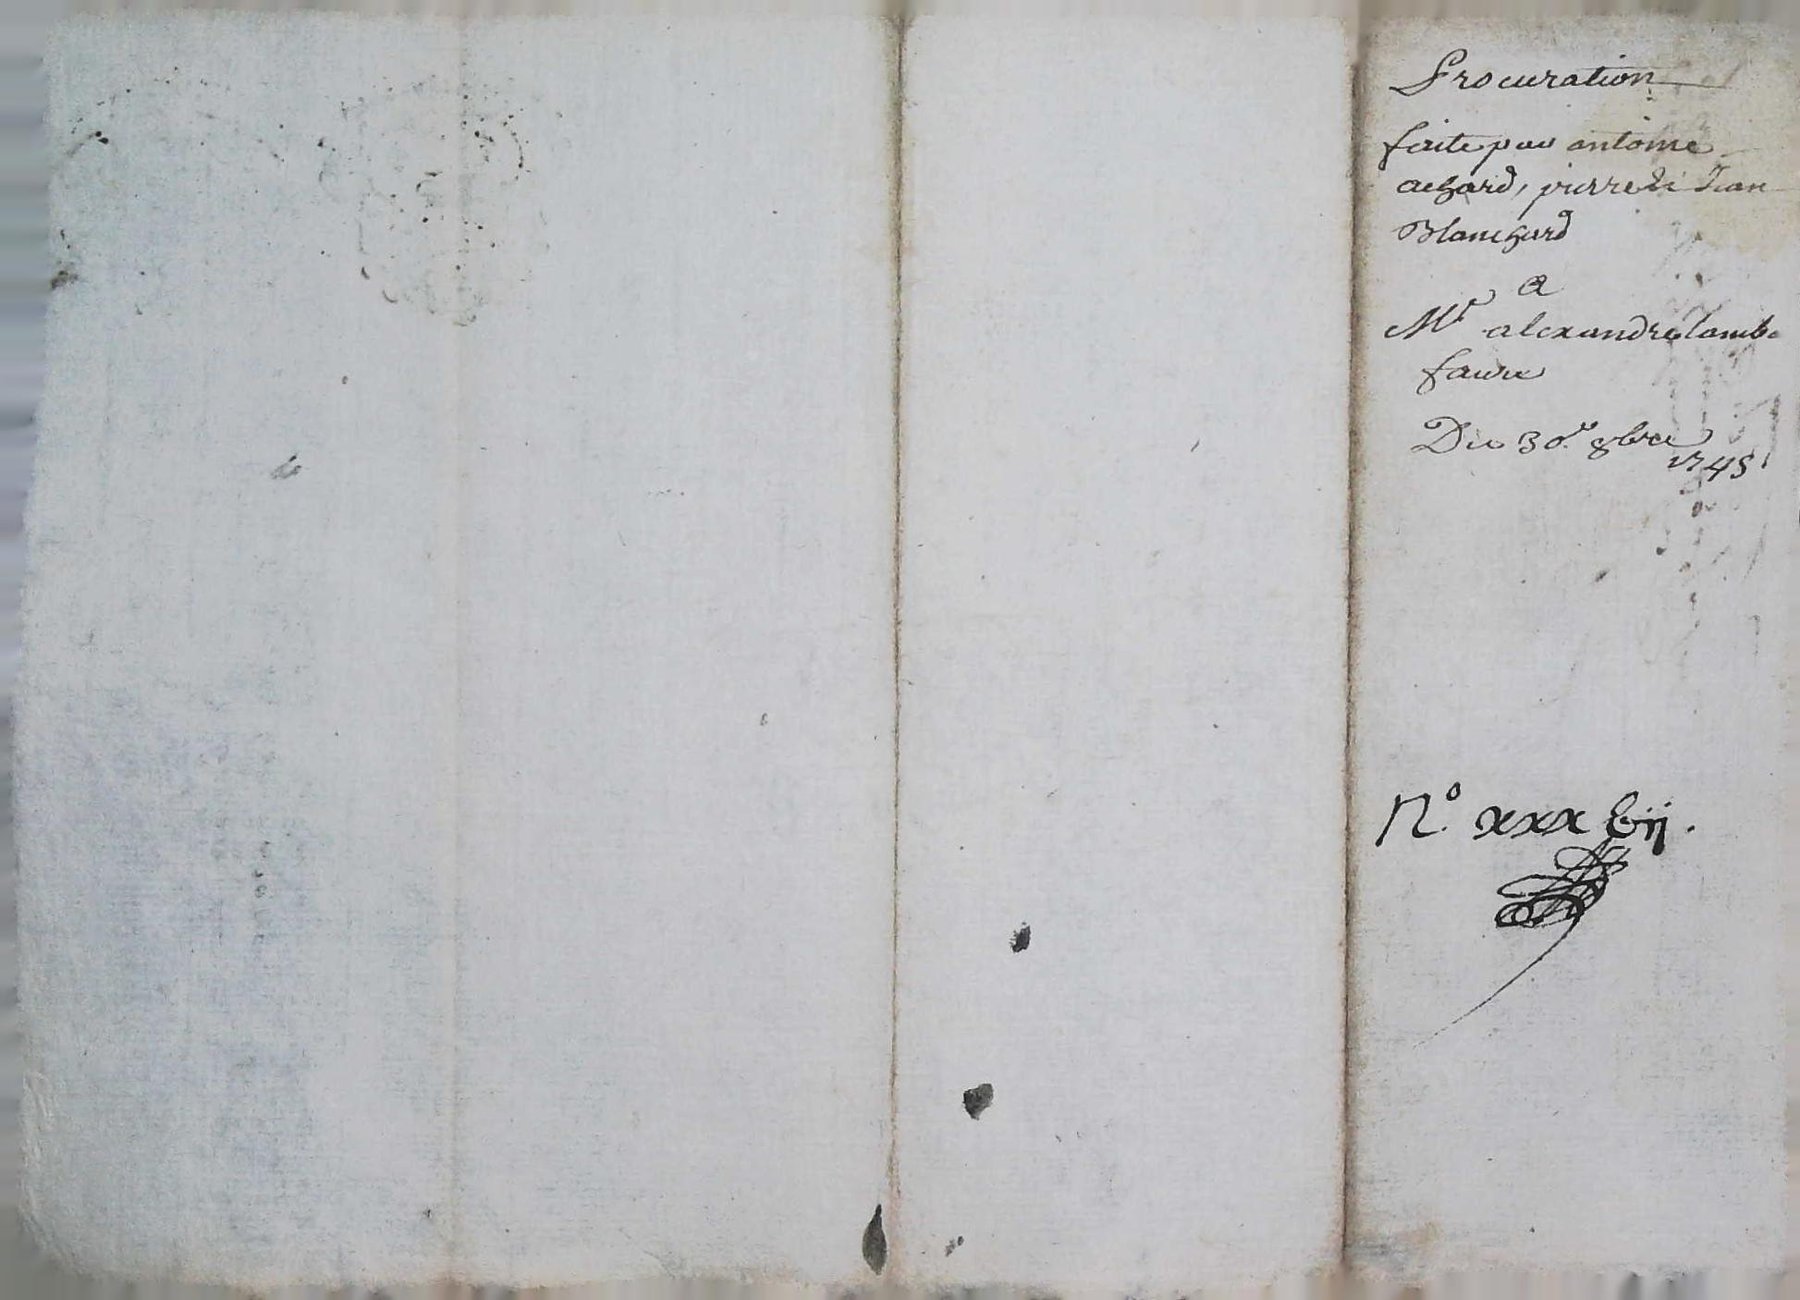 Procuration
faite par antoine
achard, pierre & Jean
Blanchard
A
Mr alexandre lambe
faure
Du 30e 8bre
1745
N.o xxxvij.